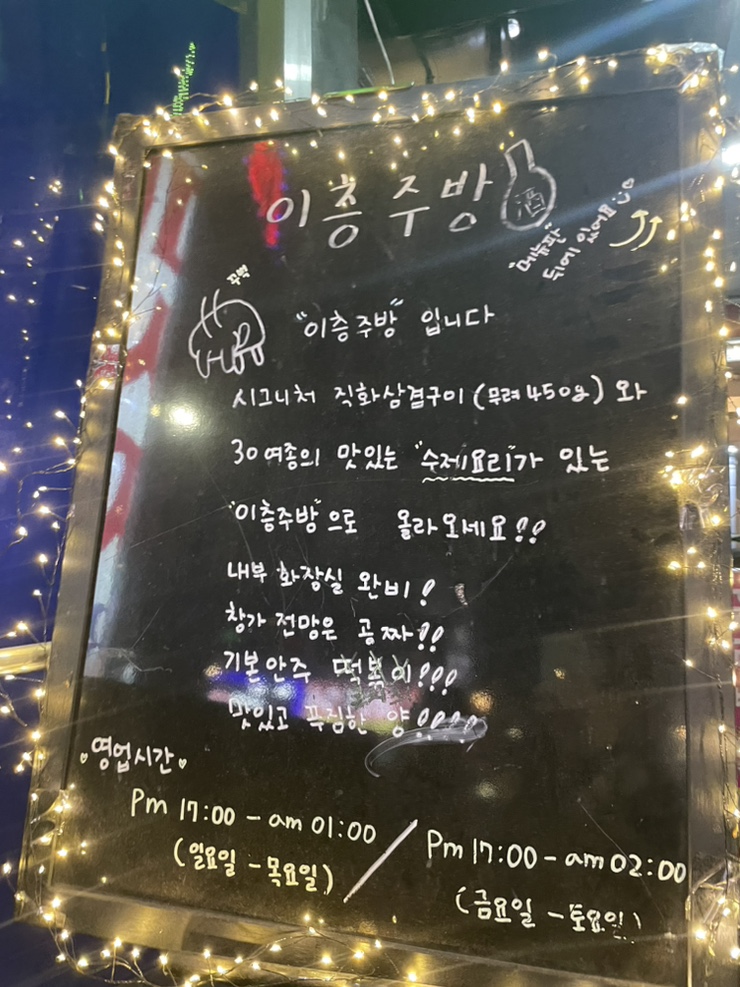 이층주방
酒
"메뉴판"
뒤에 있어요
꾸벅
"이층주방" 입니다
시그니처 직화삼겹구이 (무려 450g) 와
30여종의 맛있는 "수제요리"가 있는
"이층주방"으로 올라오세요!!
내부 화장실 완비!
창가 전망은 공짜!!
기본안주 떡볶이!!!
맛있고 푹짐한 양!!!!
영업시간
Pm 17:00 - am 01:00
(일요일 - 목요일)
/
Pm 17:00 - am 02:00
(금요일 - 토요일)